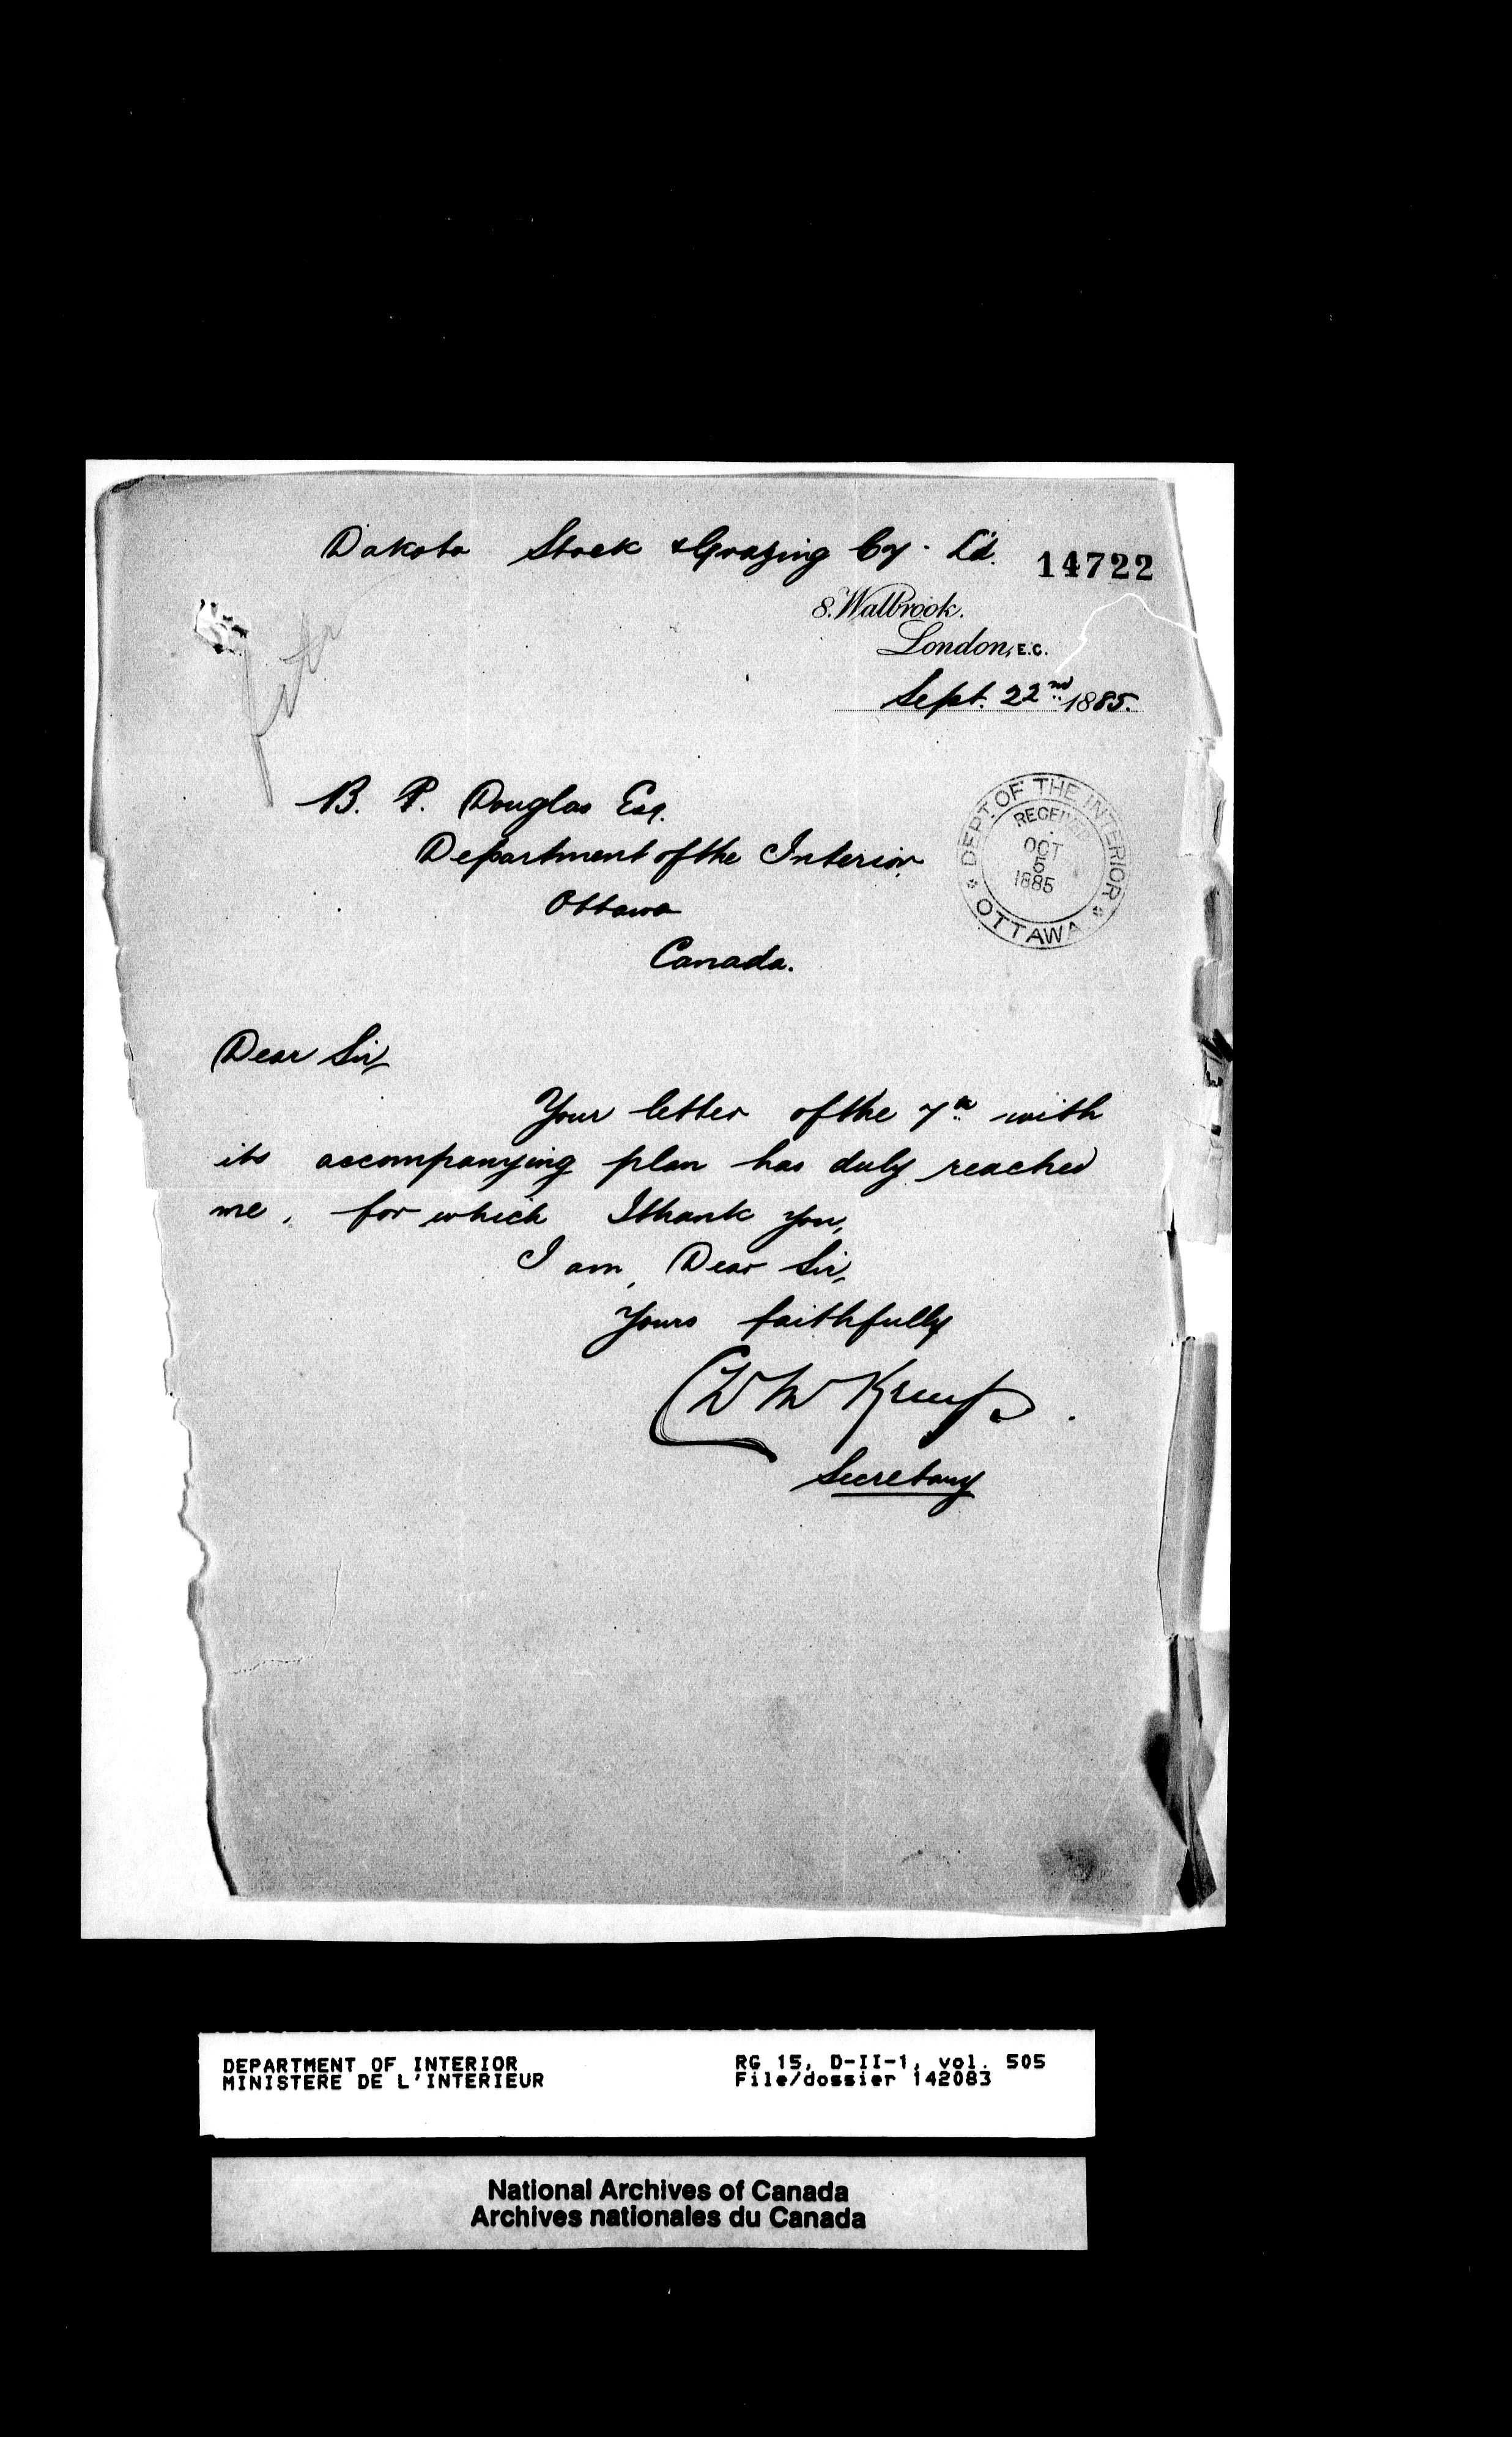 Dakota Stock & Grazing Cy. Ld.
14722
8. Walbrook.
London, E.C.
Sept. 22nd 1885.
B. P. Douglas Esq.
Department of the Interior
Ottawa
Canada.
DEPT. OF THE INTERIOR
RECEIVED
OCT
5
1885
OTTAWA
Dear Sir,
Your letter of the 7th with
its accompanying plan has duly reached
me, for which I thank you,
I am, Dear Sir,
Yours faithfully
Secretary
DEPARTMENT OF INTERIOR
MINISTERE DE L'INTERIEUR
RG 15, D-II-1, vol. 505
File/dossier 142083
National Archives of Canada
Archives nationales du Canada